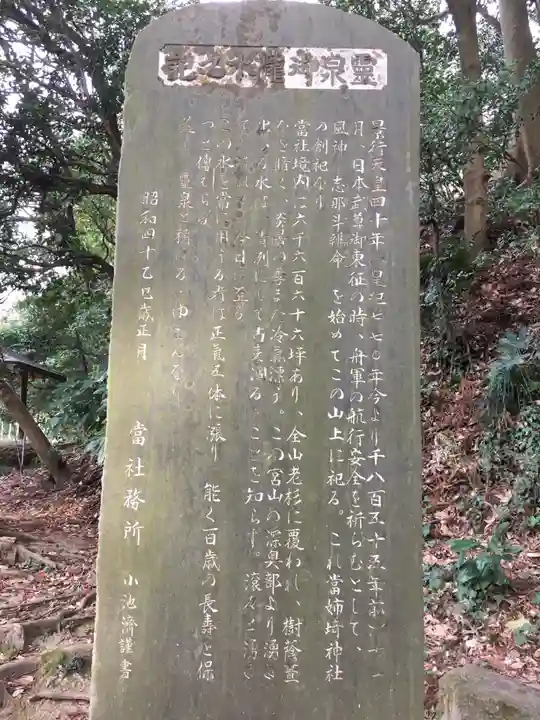 靈泉御瀧水之記
景行天皇四十年(皇紀七七〇年今より千八百五十五年前)十一
月、日本武尊御東征の時、舟軍の航行安全を祈らむとして、
風神(志那斗辨命)を始めてこの山上に祀る。これ當姉埼神社
の創祀なり
當社境内に六千六百六十六坪あり、全山老杉に覆われ、樹蔭萱
を暗く、炎暑の季また冷氣漂う。この宮山の深奥部より湧き
出る水は 清冽にして古来涸ることを知らず。滾々と湧き
て 今日に至る
この水を常に用うる者は正氣五体に漲り 能く百歳の長壽を保
つと傳えらる
靈泉と稱する ゆえんなり
昭和四十乙巳歳正月
當社務所 小池濟謹書